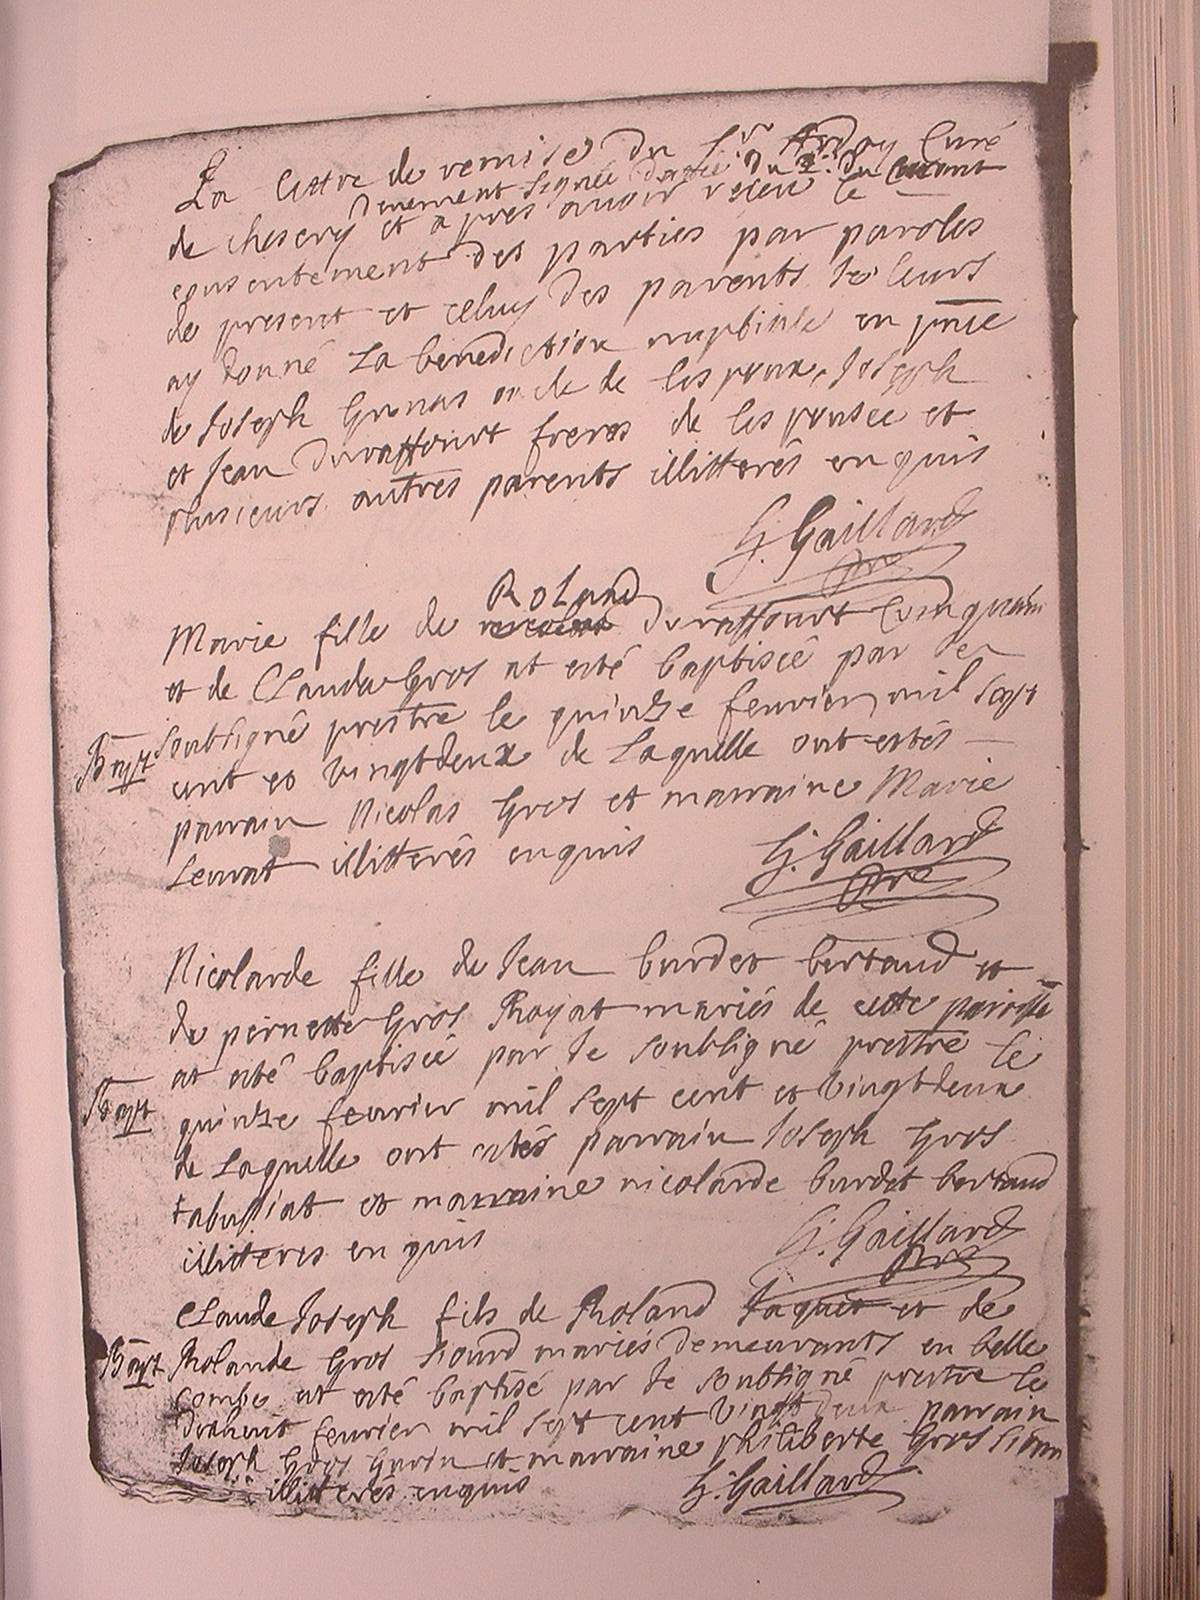 La lettre de remise du Sr curé
deuement signée dattée du 2. du courant
de cheserÿ et apres avoir receu le
consentement des parties par paroles
de present et celuy des parents de leurs
ay donné La benediction nuptiale en pnce
de Joseph oncle de lespoux, Joseph
et Jean Duraffourt freres de lespousée et
plusieurs autres parents illitterés enquis
G. Gaillard
pre
Roland
Marie fille de Duraffourt
et de Clauda Gros at esté baptiseé par le
soubsigné prestre le quinze fevrier mil sept
Bapt
cent et vingtdeux de Laquelle ont estés
parrain Nicolas Gros et marraine Marie
illitterés enquis
G. Gaillard
pre
Nicolarde fille de Jean burdet bertand et
de pernette Gros Royat mariés de cette paroisse
at esté baptiseé par le soubsigné prestre le
Bapt
quinze fevrier mil sept cent et vingtdeux
de Laquelle ont estés parrain Joseph Gros
et marraine nicolarde burdet bertand
illitteres enquis
G. Gaillard
pre
Claude Joseph fils de Roland Jaquet et de
Bapt
Rolande Gros mariés demeurants en belle
combe at esté baptisé par le soubsigné prestre le
dixhuit fevrier mil sept cent vingt deux parrain
Joseph Gros et marraine philiberte Gros
illitterés enquis
G. Gaillard